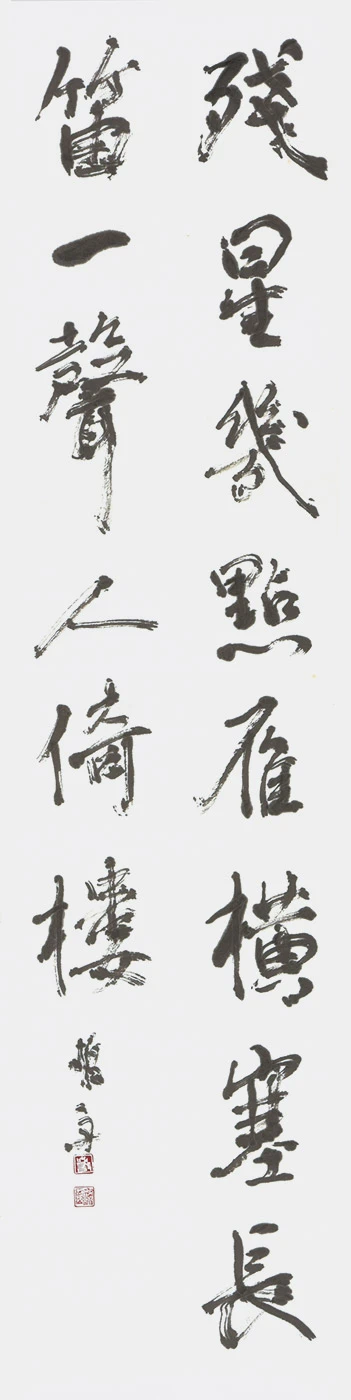 殘星幾點雁橫塞長
笛一聲人倚樓